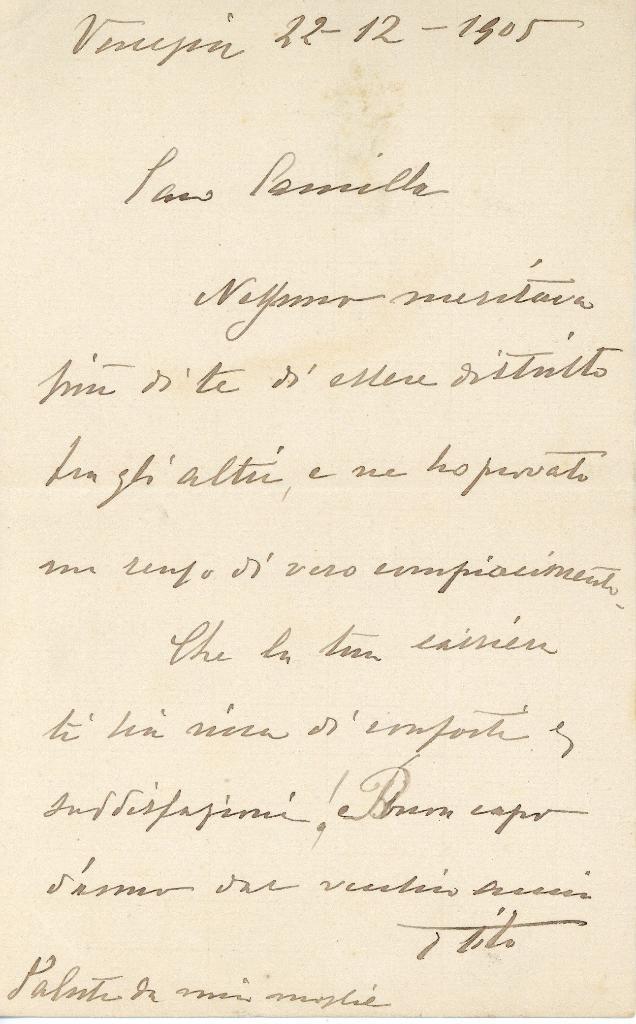 Venezia 22-12-1905
Caro Camillo
Nessuno meritava
più di te di essere distinto
fra gli altri, e ne ho provato
un senso di vero compiacimento.
Che la tua carriera
ti sia ricca di conforti e
soddisfazioni! e Buon capo
d'anno dal vecchio amico
Tito
Saluti da mia moglie